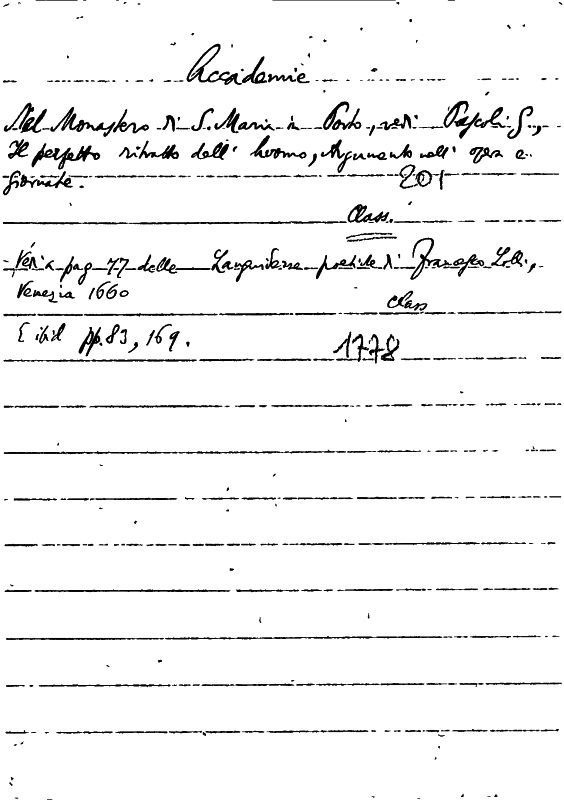 Accademie
Nel Monastero di S. Maria in Porto, vedi Pascoli G.,
Il perfetto ritratto dell' huomo, Argumento nell' opera e
giornate. 201
Class.
Vedi a pag 77 delle poetiche di Francesco,
Venezia 1660
Class
E ibid pp. 83, 169.
1778